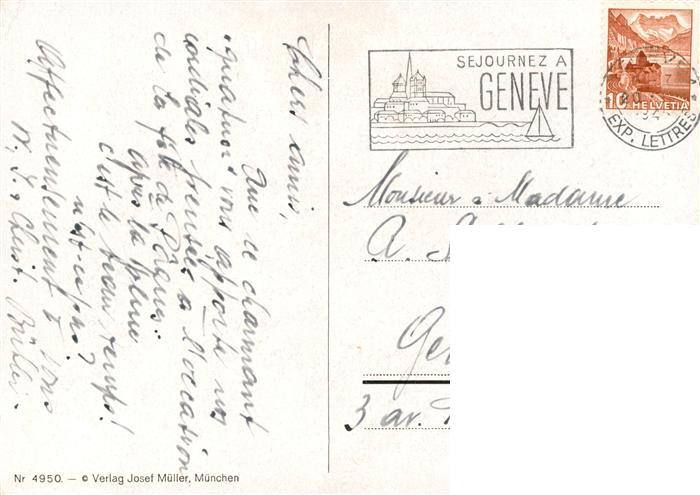 Chers amis,
Que ce charmant
quatuor vous apporte nos
cordiales pensées à l'occasion
de la fête de Pâques:
après la pluie
c'est le beau temps!
n'est-ce pas?
Affectueusement à vous
SEJOURNEZ A
GENEVE
10 HELVETIA
EXP. LETTRES
Monsieur & Madame
A.
3 av.
Nr 4950. — © Verlag Josef Müller, München